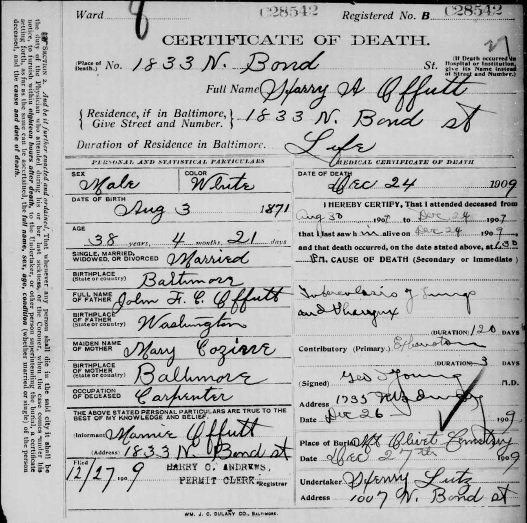 Ward 8 C28542 Registered No. B C28542
CERTIFICATE OF DEATH.
27
(Place of Death.) No. 1833 N. Bond St. (If Death occurred in Hospital or Institution, give its Name instead of Street and Number.)
Full Name Harry A Offutt
{ Residence, if in Baltimore, Give Street and Number. } 1833 N. Bond st
Duration of Residence in Baltimore. Life
PERSONAL AND STATISTICAL PARTICULARS
SEX Male
COLOR White
DATE OF BIRTH Aug 3 1871
AGE 38 years, 4 months, 21 days
SINGLE, MARRIED, WIDOWED, OR DIVORCED Married
BIRTHPLACE (State or country) Baltimore
FULL NAME OF FATHER John F. C. Offutt
BIRTHPLACE OF FATHER (State or country) Washington
MAIDEN NAME OF MOTHER Mary
BIRTHPLACE OF MOTHER (State or country) Baltimore
OCCUPATION OF DECEASED Carpenter
THE ABOVE STATED PERSONAL PARTICULARS ARE TRUE TO THE BEST OF MY KNOWLEDGE AND BELIEF.
(Informant) Mamie Offutt
(Address) 1833 N. Bond st
Filed 12/27 1909 HARRY C. ANDREWS,
PERMIT CLERK. Registrar
MEDICAL CERTIFICATE OF DEATH
DATE OF DEATH Dec 24 1909
I HEREBY CERTIFY, That I attended deceased from
Aug 30 1909 to Dec 24 1909
that I last saw h im alive on Dec 24 1909,
and that death occurred, on the date stated above, at 6.30
P M. CAUSE OF DEATH (Secondary or Immediate)
Tuberculosis of Lungs
and Pharynx
(DURATION) 120 DAYS
Contributory (Primary.) Exhaustion
(DURATION) 3 DAYS
(Signed) Geo J Young M.D.
Address 1735
Date Dec 26 1909
Place of Burial Mt Olivet Cemetery
Date Dec 27th 1909
Undertaker Henry Lutz
Address 1007 N. Bond st
WM. J. C. DULANY CO., BALTIMORE.
SECTION 2. And be it further enacted and ordained, That whenever any person shall die in the said city it shall be
the duty of the Physician who attended during his or her last sickness, or the Coroner, when the case comes under his
notice, to furnish within eighteen hours after death, to the Undertaker, or other person superintending the burial, a certificate
setting forth, as far as the same can be ascertained, the full name, sex, age, condition (whether married or single) of the person
deceased, and the cause and date of death.